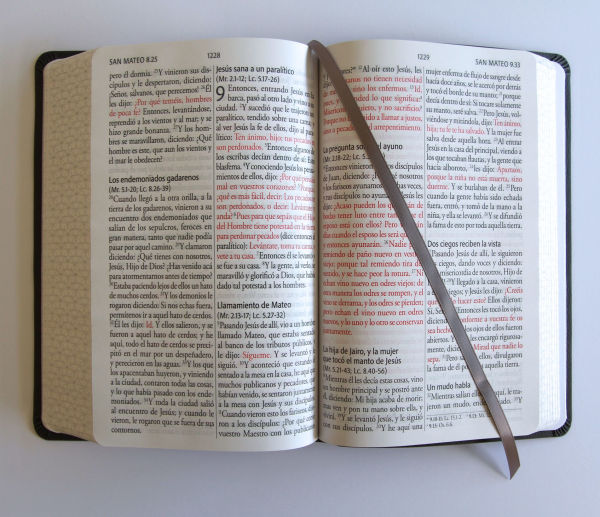 SAN MATEO 8.25
1228
pero él dormía. 25Y vinieron sus dis-
cípulos y le despertaron, diciendo:
¡Señor, sálvanos, que perecemos! 26Él
les dijo: ¿Por qué teméis, hombres
de poca fe? Entonces, levantándose,
reprendió a los vientos y al mar; y se
hizo grande bonanza. 27Y los hom-
bres se maravillaron, diciendo: ¿Qué
hombre es este, que aun los vientos y
el mar le obedecen?
Los endemoniados gadarenos
(Mr. 5.1-20; Lc. 8.26-39)
28Cuando llegó a la otra orilla, a la
tierra de los gadarenos, vinieron a su
encuentro dos endemoniados que
salían de los sepulcros, feroces en
gran manera, tanto que nadie podía
pasar por aquel camino. 29Y clamaron
diciendo: ¿Qué tienes con nosotros,
Jesús, Hijo de Dios? ¿Has venido acá
para atormentarnos antes de tiempo?
30Estaba paciendo lejos de ellos un hato
de muchos cerdos. 31Y los demonios le
rogaron diciendo: Si nos echas fuera,
permítenos ir a aquel hato de cerdos.
32Él les dijo: Id. Y ellos salieron, y se
fueron a aquel hato de cerdos; y he
aquí, todo el hato de cerdos se preci-
pitó en el mar por un despeñadero,
y perecieron en las aguas. 33Y los que
los apacentaban huyeron, y viniendo
a la ciudad, contaron todas las cosas,
y lo que había pasado con los ende-
moniados. 34Y toda la ciudad salió
al encuentro de Jesús; y cuando le
vieron, le rogaron que se fuera de sus
contornos.
Jesús sana a un paralítico
(Mr. 2.1-12; Lc. 5.17-26)
9 Entonces, entrando Jesús en la
barca, pasó al otro lado y vino a su
ciudad. 2Y sucedió que le trajeron un
paralítico, tendido sobre una cama; y
al ver Jesús la fe de ellos, dijo al para-
lítico: Ten ánimo, hijo; tus pecados te
son perdonados. 3Entonces algunos de
los escribas decían dentro de sí: Este
blasfema. 4Y conociendo Jesús los pensa-
mientos de ellos, dijo: ¿Por qué pensáis
mal en vuestros corazones? 5Porque,
¿qué es más fácil, decir: Los pecados te
son perdonados, o decir: Levántate y
anda? 6Pues para que sepáis que el Hijo
del Hombre tiene potestad en la tierra
para perdonar pecados (dice entonces al
paralítico): Levántate, toma tu cama, y
vete a tu casa. 7Entonces él se levantó y
se fue a su casa. 8Y la gente, al verlo, se
maravilló y glorificó a Dios, que había
dado tal potestad a los hombres.
Llamamiento de Mateo
(Mr. 2.13-17; Lc. 5.27-32)
9Pasando Jesús de allí, vio a un hombre
llamado Mateo, que estaba sentado
al banco de los tributos públicos, y
le dijo: Sígueme. Y se levantó y le
siguió. 10Y aconteció que estando él
sentado a la mesa en la casa, he aquí que
muchos publicanos y pecadores, que
habían venido, se sentaron juntamente
a la mesa con Jesús y sus discípulos.
11Cuando vieron esto los fariseos, dijeron
a los discípulos: ¿Por qué come
vuestro Maestro con los publicanos
1229
SAN MATEO 9.33
12Al oír esto Jesús, les
no tienen necesidad
sino los enfermos. 13Id,
lo que significa:
quiero, y no sacrificio.
no he venido a llamar a justos,
sino a pecadores, al arrepentimiento.
La pregunta sobre el ayuno
(Mr. 2.18-22; Lc. 5.33-39)
14Entonces vinieron a él los discípulos
de Juan, diciendo: ¿Por qué nosotros y
los fariseos ayunamos muchas veces, y
tus discípulos no ayunan? 15Jesús les
dijo: ¿Acaso pueden los que están de
bodas tener luto entre tanto que el
esposo está con ellos? Pero vendrán
días cuando el esposo les será quitado,
y entonces ayunarán. 16Nadie pone
remiendo de paño nuevo en vestido
viejo; porque tal remiendo tira del
vestido, y se hace peor la rotura. 17Ni
echan vino nuevo en odres viejos; de
otra manera los odres se rompen, y el
vino se derrama, y los odres se pierden;
pero echan el vino nuevo en odres
nuevos, y lo uno y lo otro se conservan
juntamente.
La hija de Jairo, y la mujer
que tocó el manto de Jesús
(Mr. 5.21-43; Lc. 8.40-56)
18Mientras él les decía estas cosas, vino
un hombre principal y se postró ante
él, diciendo: Mi hija acaba de morir;
mas ven y pon tu mano sobre ella, y
vivirá. 19Y se levantó Jesús, y le siguió
con sus discípulos. 20Y he aquí una
mujer enferma de flujo de sangre desde
hacía doce años, se le acercó por detrás
y tocó el borde de su manto; 21porque
decía dentro de sí: Si tocare solamente
su manto, seré salva. 22Pero Jesús, vol-
viéndose y mirándola, dijo: Ten ánimo,
hija; tu fe te ha salvado. Y la mujer fue
salva desde aquella hora. 23Al entrar
Jesús en la casa del principal, viendo a
los que tocaban flautas, y la gente que
hacía alboroto, 24les dijo: Apartaos,
porque la niña no está muerta, sino
duerme. Y se burlaban de él. 25Pero
cuando la gente había sido echada
fuera, entró, y tomó de la mano a la
niña, y ella se levantó. 26Y se difundió
la fama de esto por toda aquella tierra.
Dos ciegos reciben la vista
27Pasando Jesús de allí, le siguieron
dos ciegos, dando voces y diciendo:
¡Ten misericordia de nosotros, Hijo de
David! 28Y llegado a la casa, vinieron
a él los ciegos; y Jesús les dijo: ¿Creéis
que puedo hacer esto? Ellos dijeron:
Sí, Señor. 29Entonces les tocó los ojos,
diciendo: Conforme a vuestra fe os
sea hecho. 30Y los ojos de ellos fueron
abiertos. Y Jesús les encargó rigurosa-
mente, diciendo: Mirad que nadie lo
sepa. 31Pero salidos ellos, divulgaron
la fama de él por toda aquella tierra.
Un mudo habla
32Mientras salían ellos, he aquí, le tra-
jeron un mudo, endemoniado. 33Y